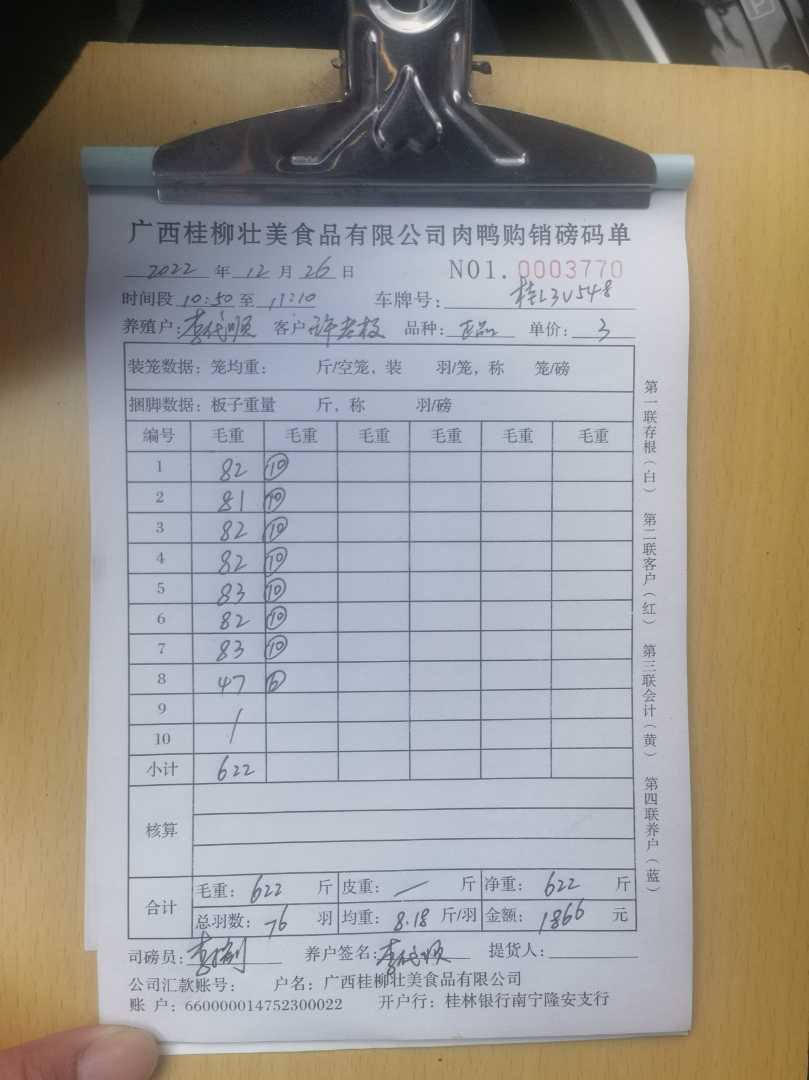 广西桂柳壮美食品有限公司肉鸭购销磅码单
2022 年 12 月 26 日 NO1. 0003770
时间段 10:50 至 11:10 车牌号: 桂L3V548
养殖户: 李代顺 客户 许老板 品种: 正品 单价: 3
装笼数据: 笼均重: 斤/空笼, 装 羽/笼, 称 笼/磅
捆脚数据: 板子重量 斤, 称 羽/磅
编号 毛重 毛重 毛重 毛重 毛重 毛重
1 82 10
2 81 10
3 82 10
4 82 10
5 83 10
6 82 10
7 83 10
8 47 6
9 /
10
小计 622
核算
合计 毛重: 622 斤 皮重: — 斤 净重: 622 斤
总羽数: 76 羽 均重: 8.18 斤/羽 金额: 1866 元
司磅员: 养户签名: 李代顺 提货人:
公司汇款账号: 户名: 广西桂柳壮美食品有限公司
账 户: 660000014752300022 开户行: 桂林银行南宁隆安支行
第一联存根(白) 第二联客户(红) 第三联会计(黄) 第四联养户(蓝)